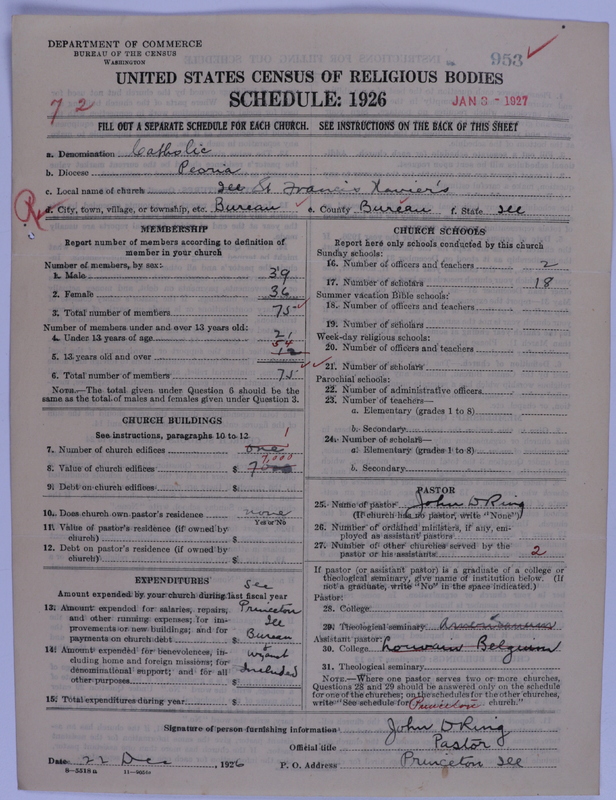 DEPARTMENT OF COMMERCE
BUREAU OF THE CENSUS
WASHINGTON
953
UNITED STATES CENSUS OF RELIGIOUS BODIES
72
SCHEDULE: 1926
JAN 3 - 1927
FILL OUT A SEPARATE SCHEDULE FOR EACH CHURCH. SEE INSTRUCTIONS ON THE BACK OF THIS SHEET
a. Denomination Catholic
b. Diocese Peoria
c. Local name of church St Francis Xavier's
d. City, town, village, or township, etc. Bureau e. County Bureau f. State Ill
MEMBERSHIP
Report number of members according to definition of
member in your church
Number of members, by sex:
1. Male 39
2. Female 36
3. Total number of members 75
Number of members under and over 13 years old:
4. Under 13 years of age 21
54
5. 13 years old and over 12
6. Total number of members 75
NOTE.—The total given under Question 6 should be the
same as the total of males and females given under Question 3.
CHURCH BUILDINGS
See instructions, paragraphs 10 to 12
1
7. Number of church edifices one
7,000
8. Value of church edifices $ 7
9. Debt on church edifices $
10. Does church own pastor's residence none
Yes or No
11. Value of pastor's residence (if owned by
church) $
12. Debt on pastor's residence (if owned by
church) $
EXPENDITURES
See
Amount expended by your church during last fiscal year
13. Amount expended for salaries, repairs, Princeton
and other running expenses; for im- Ill
provements or new buildings; and for
payments on church debt $ Bureau
14. Amount expended for benevolences, in- &
cluding home and foreign missions; for Wyanet
denominational support; and for all Included
other purposes $
15. Total expenditures during year $
CHURCH SCHOOLS
Report here only schools conducted by this church
Sunday schools:
16. Number of officers and teachers 2
17. Number of scholars 18
Summer vacation Bible schools:
18. Number of officers and teachers
19. Number of scholars
Week-day religious schools:
20. Number of officers and teachers
21. Number of scholars
Parochial schools:
22. Number of administrative officers
23. Number of teachers—
a. Elementary (grades 1 to 8)
b. Secondary
24. Number of scholars—
a. Elementary (grades 1 to 8)
b. Secondary
PASTOR
25. Name of pastor John O Ring
(If church has no pastor, write "None")
26. Number of ordained ministers, if any, em-
ployed as assistant pastors
27. Number of other churches served by the
pastor or his assistants 2
If pastor (or assistant pastor) is a graduate of a college or
theological seminary, give name of institution below. (If
not a graduate, write "No" in the space indicated.)
Pastor:
28. College
29. Theological seminary
Assistant pastor:
30. College Louvain Belgium
31. Theological seminary
NOTE.—Where one pastor serves two or more churches,
Questions 28 and 29 should be answered only on the schedule
for one of the churches; on the schedules for the other churches,
write "See schedule for Princeton church."
Signature of person furnishing information John O Ring
Official title Pastor
Date 22 Dec, 1926 P. O. Address Princeton Ill
8-5518a 11-9654